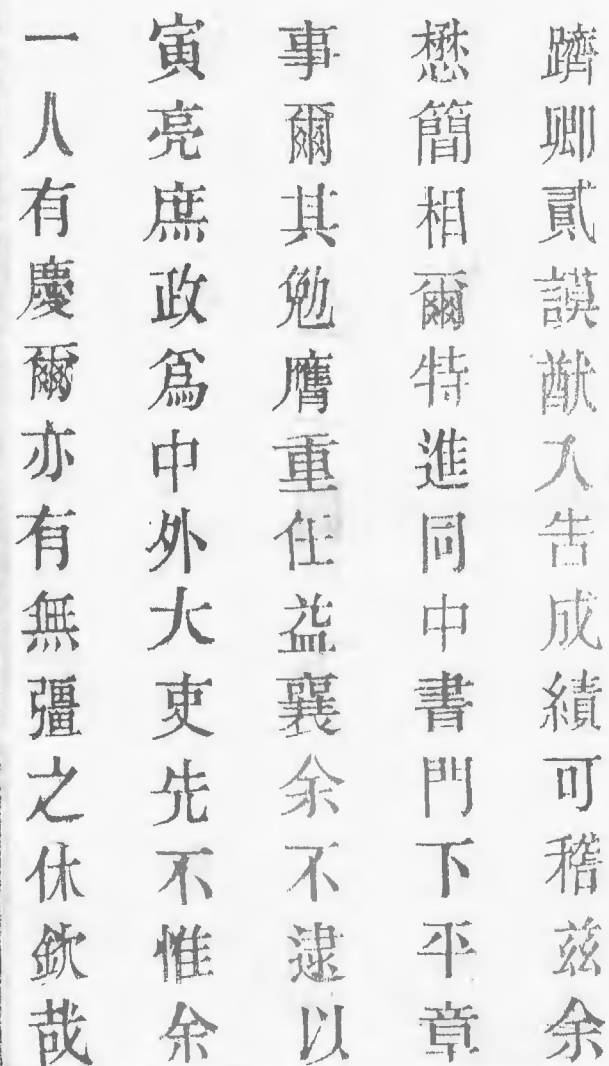 躋卿貳謨猷入告成績可稽茲余
懋簡相爾特進同中書門下平章
事爾其勉膺重任益襄余不逮以
寅亮庶政爲中外大吏先不惟余
一人有慶爾亦有無彊之休欽哉